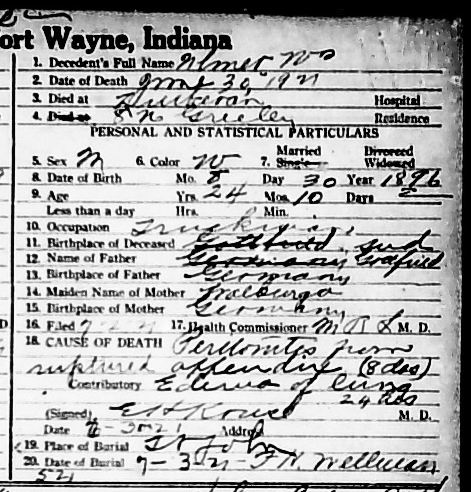 ort Wayne, Indiana
1. Decedent's Full Name Wm
2. Date of Death June 30, 1921
3. Died at Lutheran Hospital
4. Died at N Greeley Residence
PERSONAL AND STATISTICAL PARTICULARS
5. Sex M 6. Color W 7. Married Single Divorced Widowed
8. Date of Birth Mo. 8 Day 30 Year 1896
9. Age Yrs. 24 Mos. 10 Days
Less than a day Hrs. Min.
10. Occupation
11. Birthplace of Deceased Ind
12. Name of Father Germany Gottfried
13. Birthplace of Father Germany
14. Maiden Name of Mother Walburga
15. Birthplace of Mother Germany
16. Filed 7-2-21 17. Health Commissioner M. D.
18. CAUSE OF DEATH Peritonitis from
ruptured appendix (8 das)
Contributory Edema of lung
24 hrs
(Signed) E H Kruse M. D.
Date 6-30-21 Address
19. Place of Burial St John
20. Date of Burial 7-3-21 F. H. Wellman
521